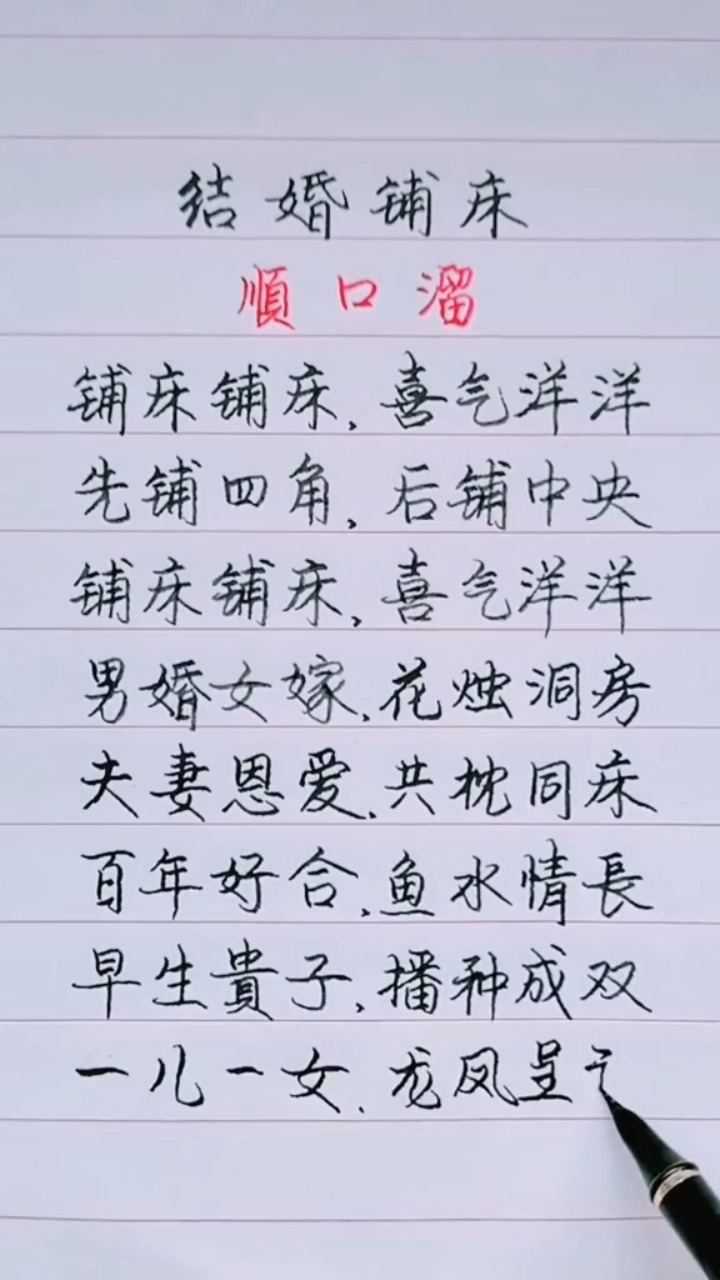 结婚铺床
順口溜
铺床铺床,喜气洋洋
先铺四角,后铺中央
铺床铺床,喜气洋洋
男婚女嫁,花烛洞房
夫妻恩爱,共枕同床
百年好合,鱼水情長
早生貴子,播种成双
一儿一女,龙凤呈